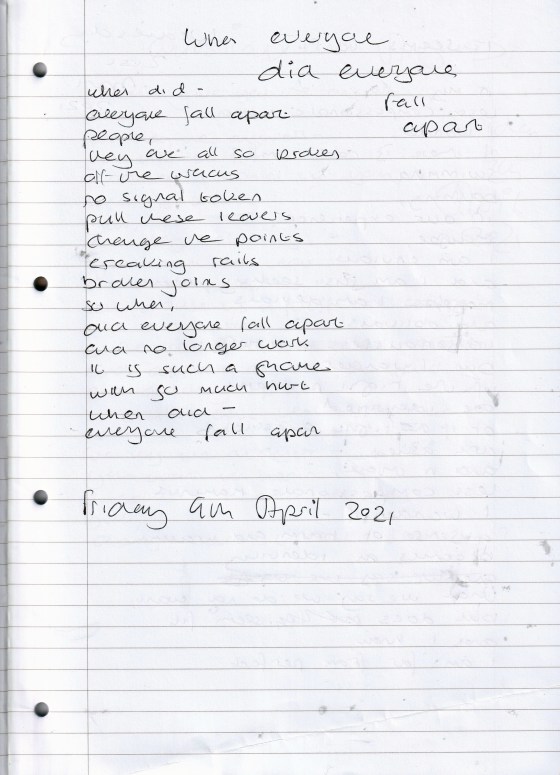 When everyone
did everyone
fall
apart
when did -
everyone fall apart
people,
they are all so broken
off the tracks
no signal token
pull these leavers
change the points
creaking rails
broken joins
so when,
did everyone fall apart
and no longer work
it is such a shame
with so much hurt
when did -
everyone fall apar
Friday 9th April 2021